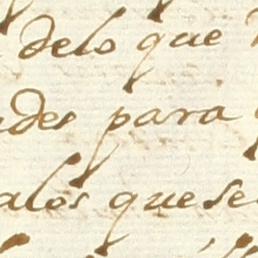 delo que
des para
alos que se